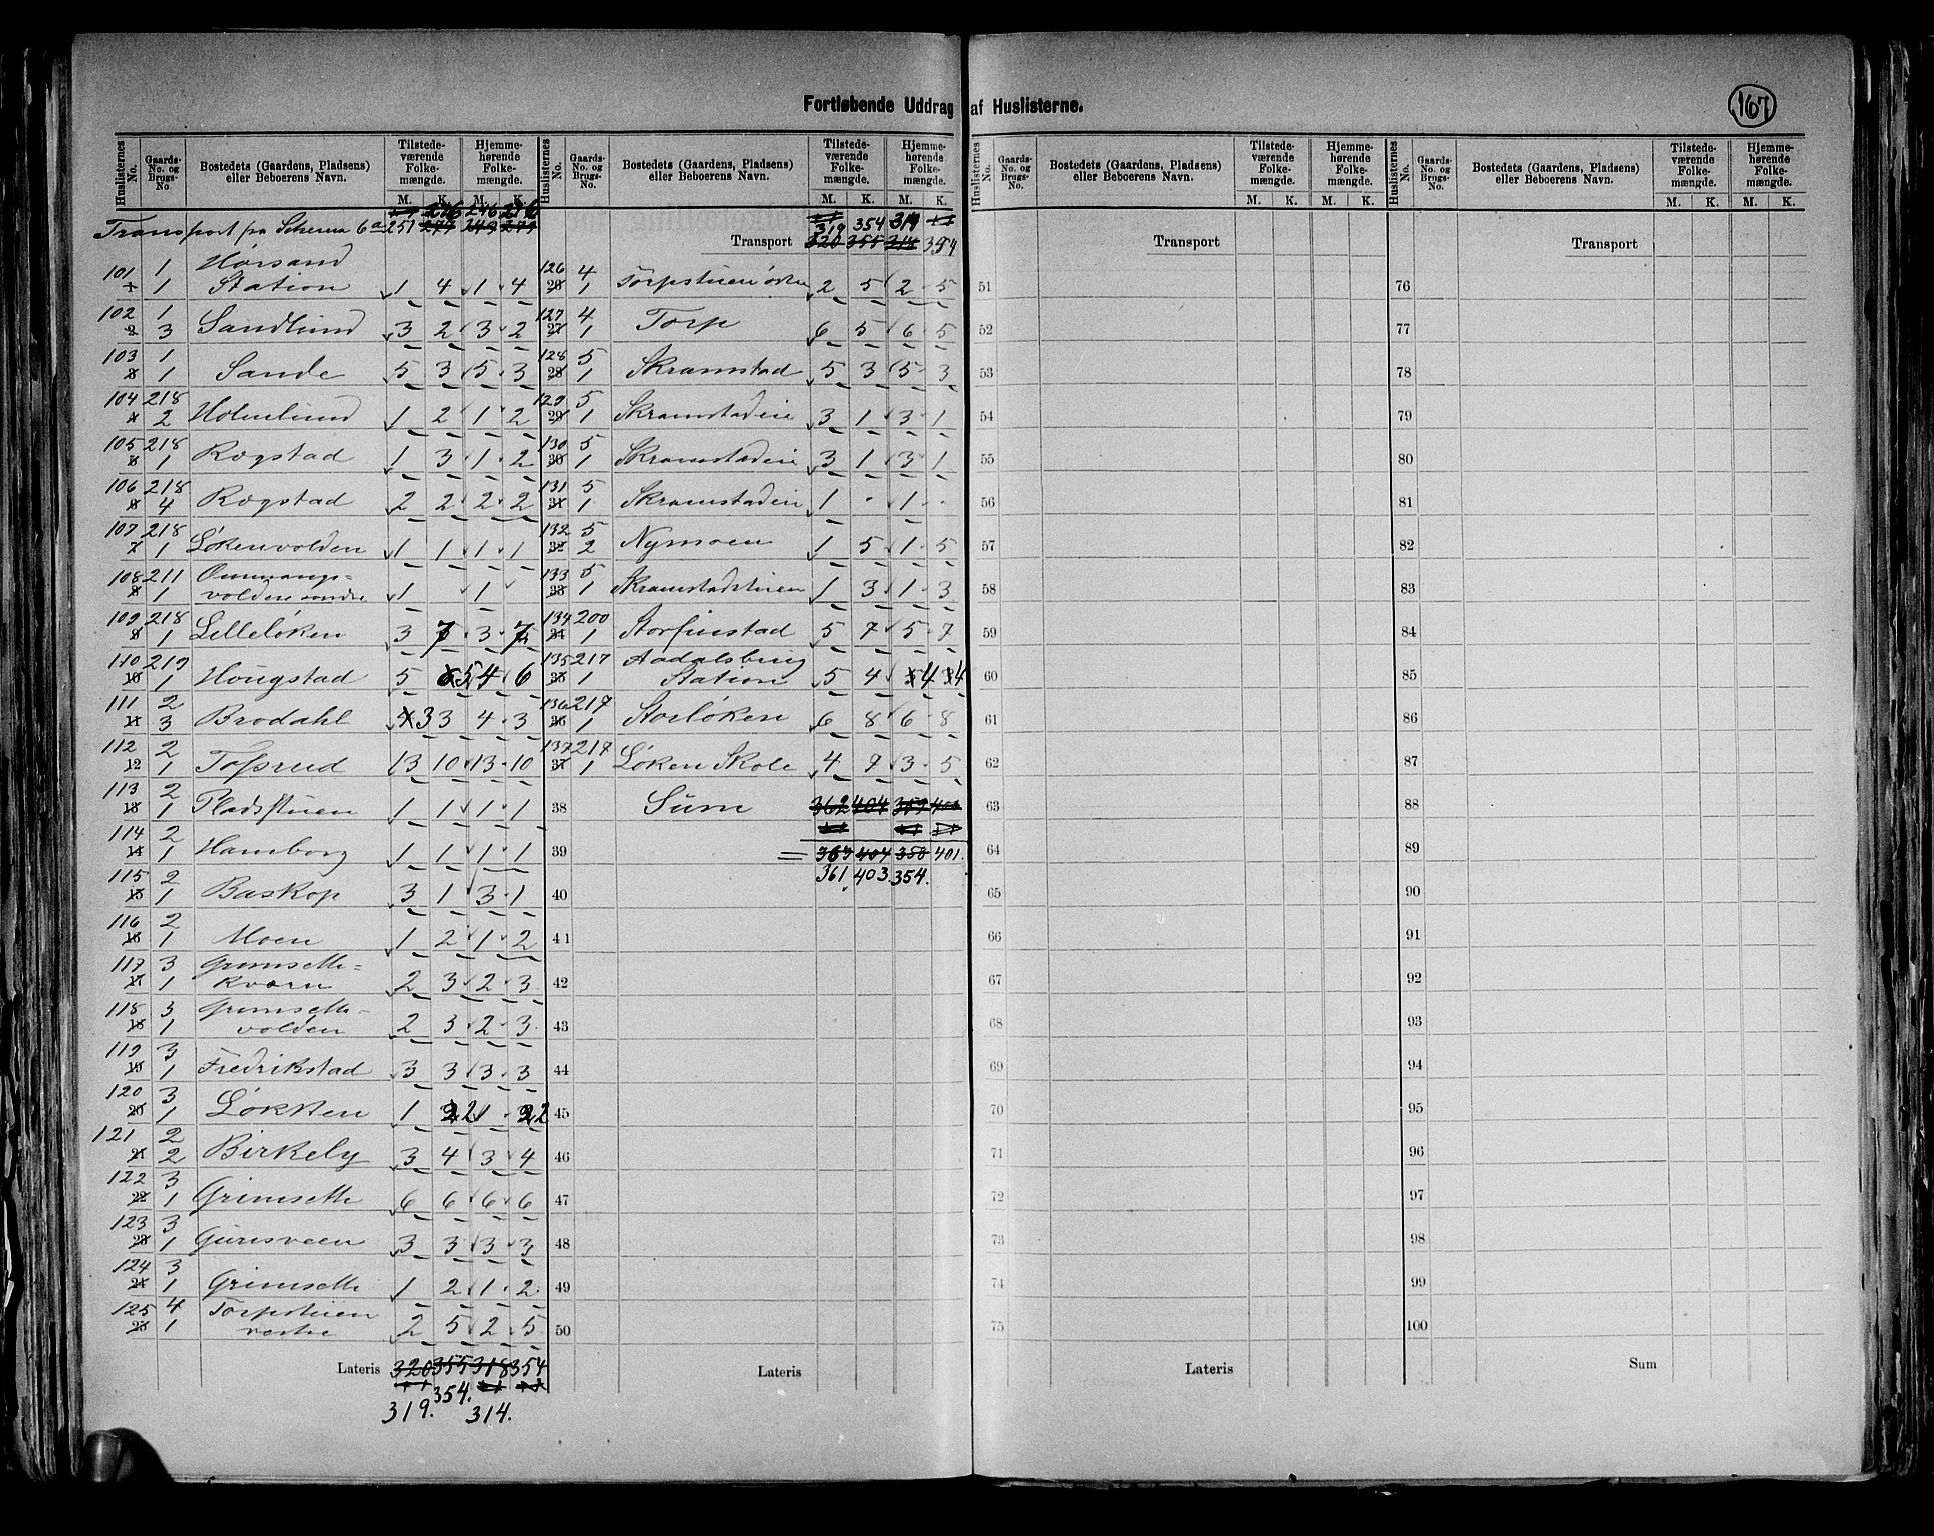 Fortløbende Uddrag af Huslisterne.
167
Huslisternes No. Gaards-No. og Brugs-No. Bostedets (Gaardens, Pladsens) eller Beboerens Navn. Tilstede-værende Folke-mængde. Hjemme-hørende Folke-mængde. M. K. M. K.
Transport fra Schema 6a 251 276 246 276
101 1 1 Station 1 4 1 4
102 1 3 Sandlund 3 2 3 2
103 1 1 Sande 5 3 5 3
104 218 2 Holmlund 1 2 1 2
105 218 1 Rogstad 1 3 1 2
106 218 4 Rogstad 2 2 2 2
107 218 1 Løkenvolden 1 1 1 1
108 211 1 Ommangs=
volden søndre 1 1
109 218 1 Lilleløken 3 7 3 7
110 219 1 Hougstad 5 5 4 6
111 2 3 Brodahl 3 3 4 3
112 2 1 Tofsrud 13 10 13 10
113 2 1 Pladsstuen 1 1 1 1
114 2 1 Hamborg 1 1 1 1
115 2 1 Baskop 3 1 3 1
116 2 1 Moen 1 2 1 2
117 3 1 Grimsette=
kværn 2 3 2 3
118 3 1 Grimsette=
volden 2 3 2 3
119 3 1 Fredrikstad 3 3 3 3
120 3 1 Løkken 1 2 1 2
121 2 2 Birkely 3 4 3 4
122 3 1 Grimsette 6 6 6 6
123 3 1 Gurisveen 3 3 3 3
124 3 1 Grimsette 1 2 1 2
125 4 1 Torpstuen
vestre 2 5 2 5
Lateris 320 355 318 354
354.
319. 314.
Huslisternes No. Gaards-No. og Brugs-No. Bostedets (Gaardens, Pladsens) eller Beboerens Navn. Tilstede-værende Folke-mængde. Hjemme-hørende Folke-mængde. M. K. M. K.
319 354 314
Transport 320 355 318 354
126 4 1 Torpstuen østre 2 5 2 5
127 4 1 Torp 6 5 6 5
128 5 1 Skramstad 5 3 5 3
129 5 1 Skramstadeie 3 1 3 1
130 5 1 Skramstadeie 3 1 3 1
131 5 1 Skramstadeie 1 - 1 -
132 5 2 Nymoen 1 5 1 5
133 5 1 Skramstadstuen 1 3 1 3
134 200 1 Storfinstad 5 7 5 7
135 217 1 Aadalsbrug
Station 5 4 4 4
136 217 1 Storløken 6 8 6 8
137 217 1 Løken Skole 4 7 3 5
38 Sum 362 404 359
39 = 363 404 358 401.
40 361 403 354.
41
42
43
44
45
46
47
48
49
50
Lateris
Huslisternes No. Gaards-No. og Brugs-No. Bostedets (Gaardens, Pladsens) eller Beboerens Navn. Tilstede-værende Folke-mængde. Hjemme-hørende Folke-mængde. M. K. M. K.
Transport
51
52
53
54
55
56
57
58
59
60
61
62
63
64
65
66
67
68
69
70
71
72
73
74
75
Lateris
Huslisternes No. Gaards-No. og Brugs-No. Bostedets (Gaardens, Pladsens) eller Beboerens Navn. Tilstede-værende Folke-mængde. Hjemme-hørende Folke-mængde. M. K. M. K.
Transport
76
77
78
79
80
81
82
83
84
85
86
87
88
89
90
91
92
93
94
95
96
97
98
99
100
Sum